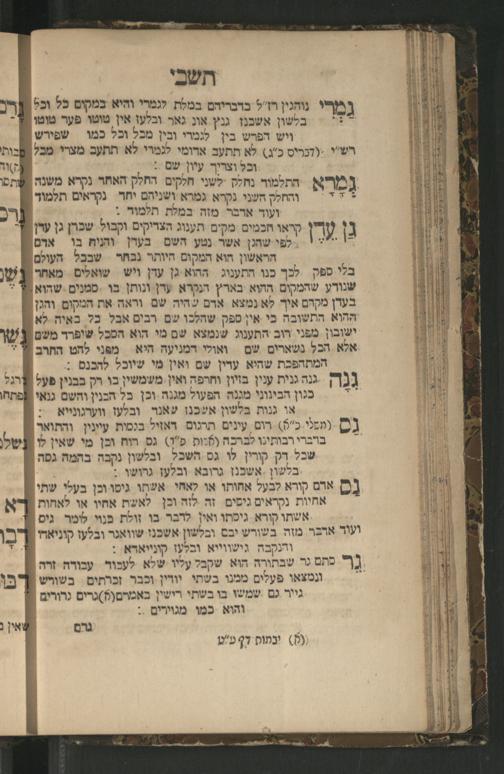 תשבי
גמרי נוהגין רז"ל בדבריהם במלת לגמרי והיא במקום כל וכל
בלשון אשכנז גנץ אונ גאר ובלעז אין טוטו פער טוטו
ויש הפרש בין לגמרי ובין מכל וכל כמו שפירש
רש"י (דברים כ"ג) לא תתעב אדומי לגמרי לא תתעב מצרי מכל
וכל וצריך עיון שם :
גמרא התלמוד נחלק לשני חלקים החלק האחד נקרא משנה
והחלק השני נקרא גמרא ושניהם יחד נקראים תלמוד
ועוד אדבר מזה במלת תלמוד :
גן עדן קראו חכמים מקום תענוג הצדיקים וקבול שכרן גן עדן
לפי שהגן אשר נטע השם בעדן והניח בו אדם
הראשון הוא המקום היותר נבחר שבכל העולם
בלי ספק לכך כנו התענוג ההוא גן עדן ויש שואלים מאחר
שנודע שהמקום ההוא בארץ הנקרא עדן ונותן בו סמנים שהוא
בעדן מקדם איך לא נמצא אדם שהיה שם וראה את המקום והגן
ההוא התשובה כי אין ספק שהלכו שם רבים אבל כל באיה לא
ישובון מפני רוב התענוג שנמצא שם מי הוא הסכל שיפרד משם
אלא הכל נשארים שם ואולי דמניעה היא מפני להט החרב
המתהפכת שהיא עדיין שם ואין מי שיוכל להכנס :
גנה גנה גנית ענין בזיון וחרפה ואין משמשין בו רק בבנין פעל
כגון הבינוני מגנה הפעול מגנה וכן כל הבנין והשם גנאי
או גנות בלשון אשכנז שאנד ובלעז ווערגונייא :
גס (משלי כ"א) רום עינים תרגום דאזיל בגסות עיינין והתואר
בדברי רבותינו לברכה (אבות פ"ד) גס רוח וכן מי שאין לו
שכל דק קורין לו גס השכל ובלשון נקבה בהמה גסה
בלשון אשכנז גרובא ובלעז גרושו :
גס אדם קורא לבעל אחותו או לאחי אשתו גיסו וכן בעלי שתי
אחיות נקראים גיסים זה לזה וכן לאשת אחיו או לאחות
אשתו קורא גיסתו ואין לדבר בו זולת כנוי לומר גיס
ועוד אדבר מזה בשורש יבם ובלשון אשכנז שוואגר ובלעז קוניאדו
והנקבה גישווייא ובלעז קונייאדא :
גר סתם גר שבתורה הוא שקבל עליו שלא לעבוד עבודה זרה
ונמצאו פעלים ממנו בשתי יודין וכבר זכרתים בשורש
גייר גם שמשו בו בשתי רישין באמרם(א)גרים גרורים
והוא כמו מגוירים :
גרם
(א) יבמות דף